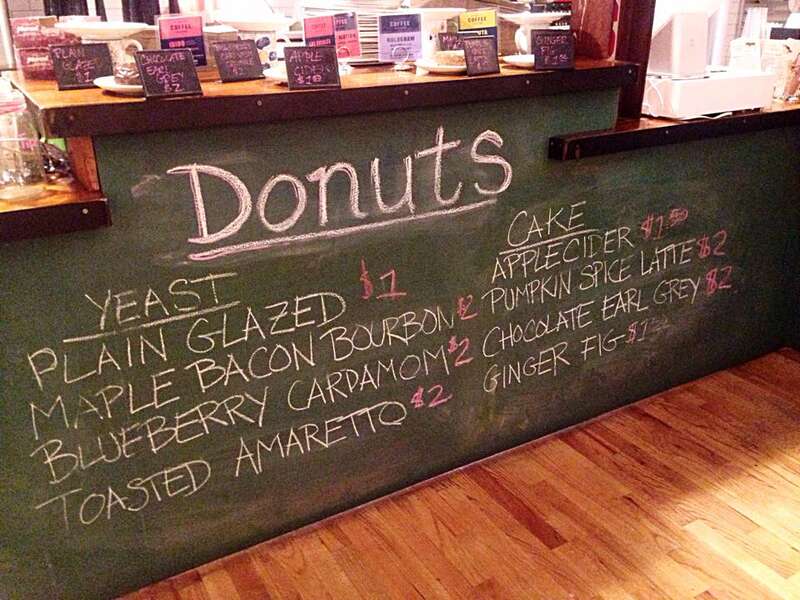 PLAIN
GLAZED
$1
CHOCOLATE
EARL
GREY
$2
APPLE
CIDER
$1.50
GINGER
FIG
COFFEE
COFFEE
HOLOGRAM
COFFEE
Donuts
YEAST
PLAIN GLAZED $1
MAPLE BACON BOURBON $2
BLUEBERRY CARDAMOM $2
TOASTED AMARETTO $2
CAKE
APPLE CIDER $1.50
PUMPKIN SPICE LATTE $2
CHOCOLATE EARL GREY $2
GINGER FIG